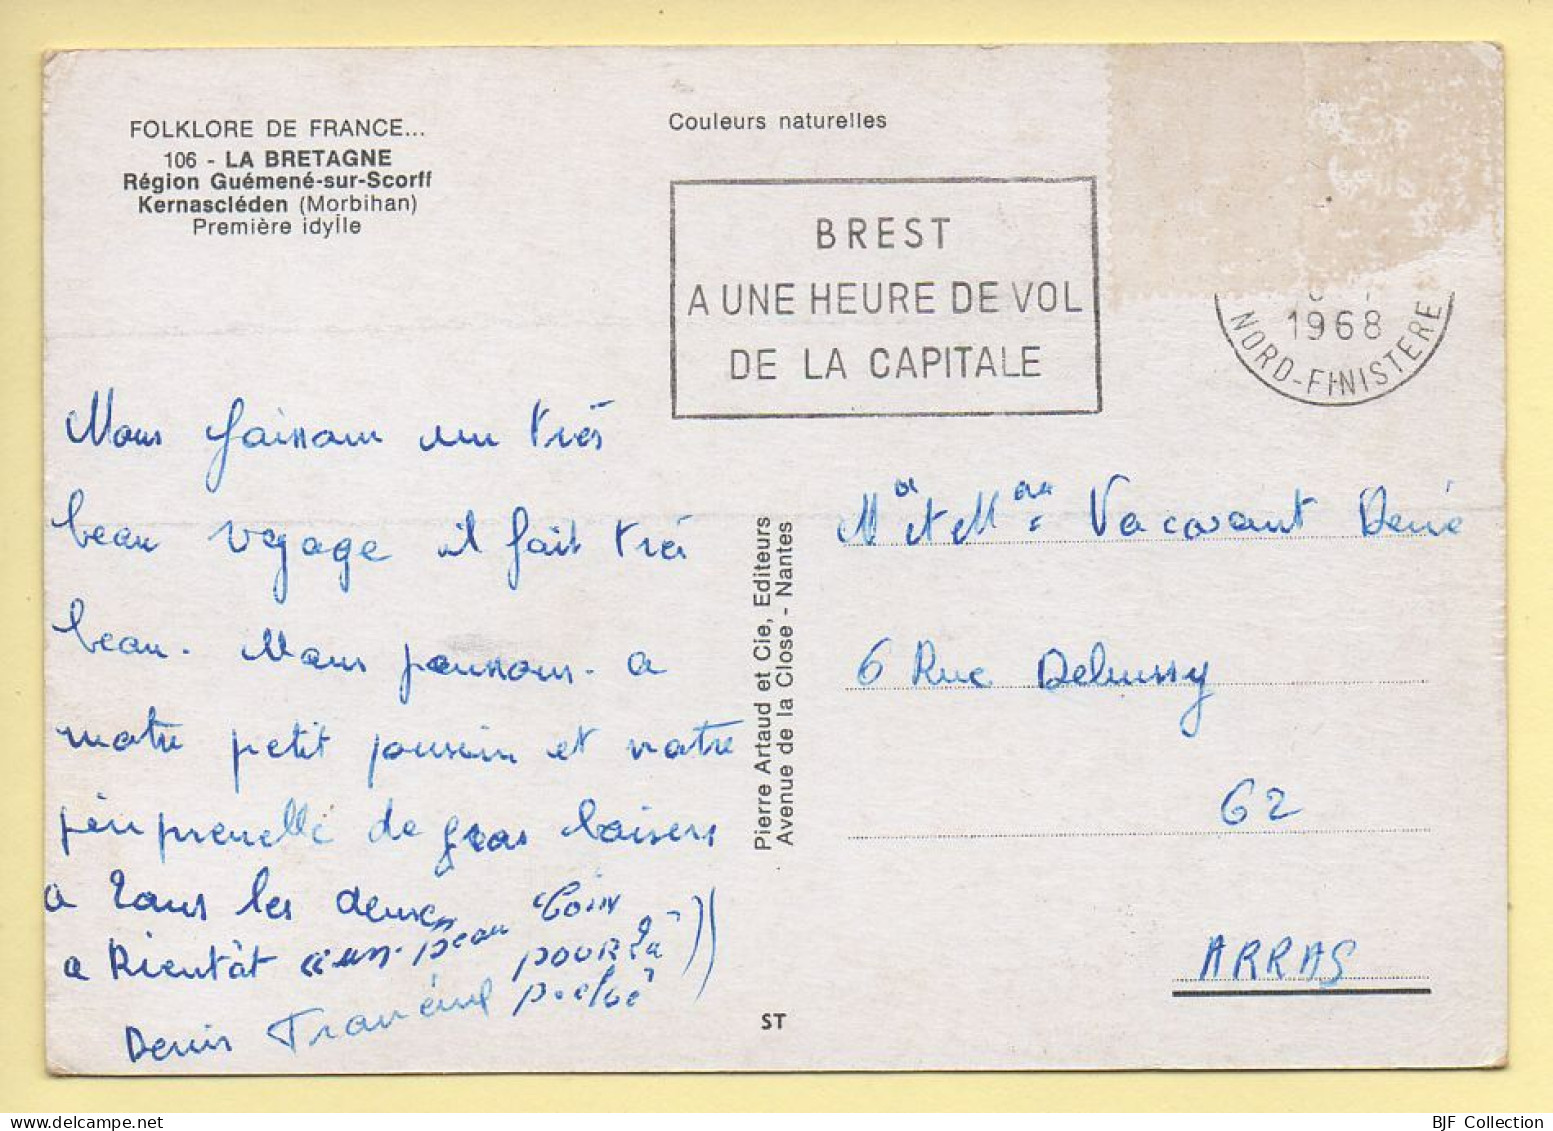 FOLKLORE DE FRANCE...
106 - LA BRETAGNE
Région Guémené-sur-Scorff
Kernascléden (Morbihan)
Première idylle
Couleurs naturelles
BREST
A UNE HEURE DE VOL
DE LA CAPITALE
1968
NORD-FINISTERE
Nous faisson un très
beau voyage il fait très
beau. Nous poussons. a
notre petit pousin et notre
prenelle de gros baisers
a tous les deux
a Bientât un beau Coin
POUR la
Denis
Pierre Artaud et Cie, Editeurs
Avenue de la Close - Nantes
Mr et Mme Vacavant Denis
6 Rue Debussy
62
ARRAS
ST
BJF Collection